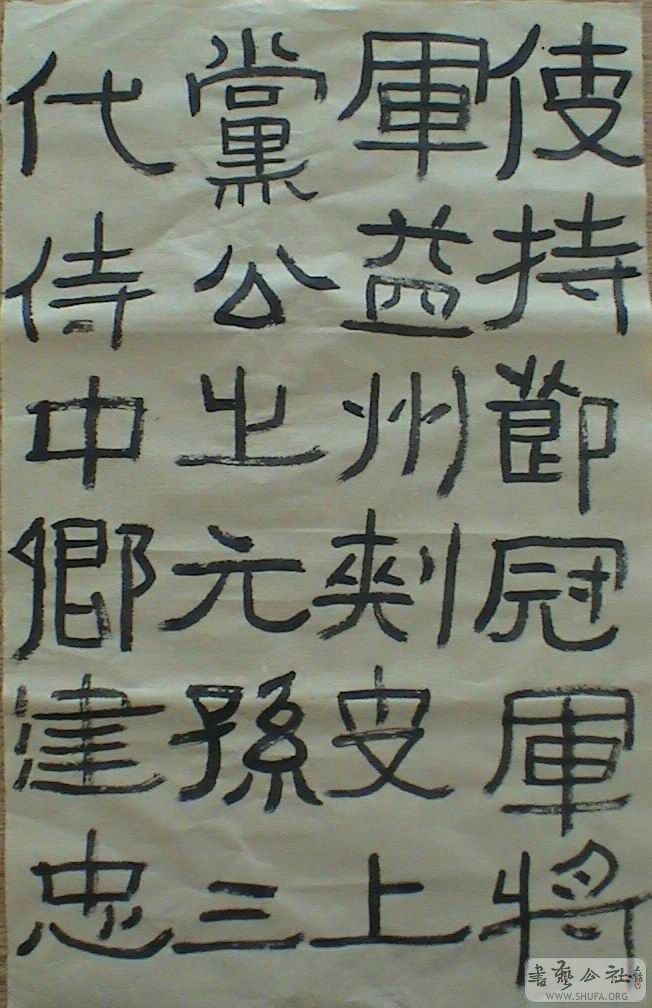 使持節冠軍將
軍益州刺史上
黨公之元孫三
代侍中卿建忠
書藝公社
WWW.SHUFA.ORG